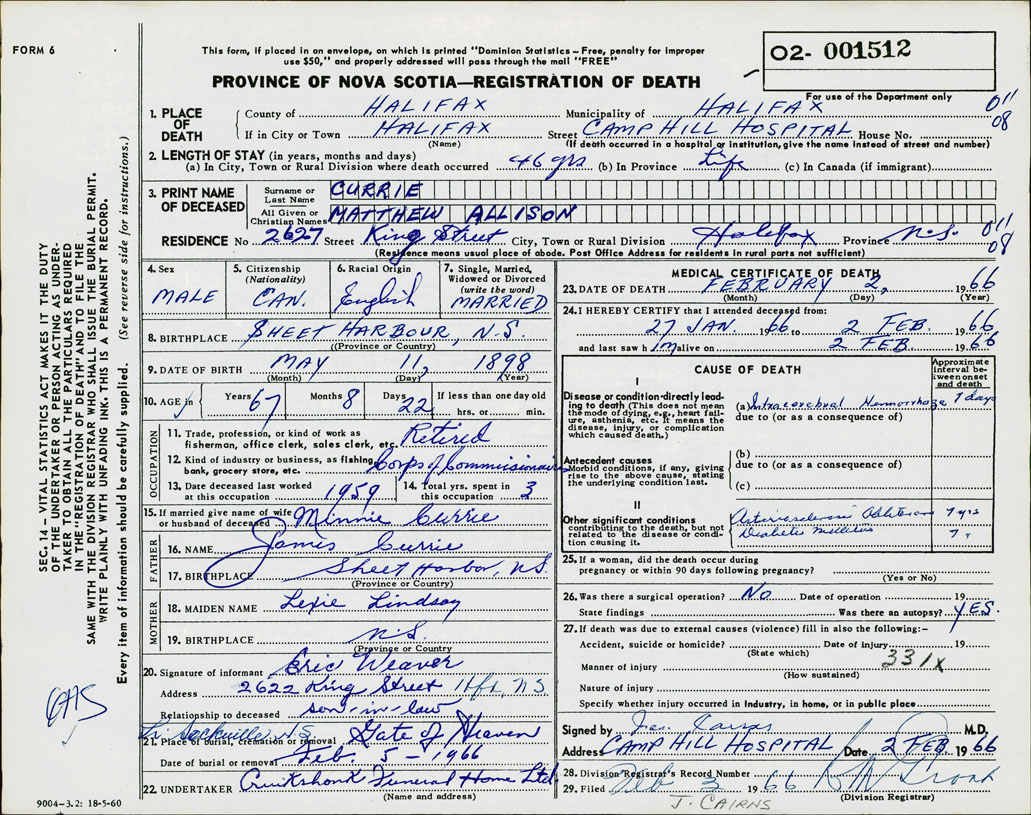 FORM 6
This form, if placed in an envelope, on which is printed "Dominion Statistics – Free, penalty for improper
use $50," and properly addressed will pass through the mail "FREE"
PROVINCE OF NOVA SCOTIA—REGISTRATION OF DEATH
02- 001512
For use of the Department only
011
08
1. PLACE OF DEATH
County of HALIFAX Municipality of HALIFAX
If in City or Town HALIFAX Street CAMP HILL HOSPITAL House No.
(Name) (If death occurred in a hospital or institution, give the name instead of street and number)
2. LENGTH OF STAY (in years, months and days)
(a) In City, Town or Rural Division where death occurred 46 yrs (b) In Province Life (c) In Canada (if immigrant)
3. PRINT NAME OF DECEASED
Surname or Last Name CURRIE
All Given or Christian Names MATTHEW ALLISON
RESIDENCE No 2627 Street King Street City, Town or Rural Division Halifax Province N.S. 011
08
(Residence means usual place of abode. Post Office Address for residents in rural parts not sufficient)
4. Sex MALE
5. Citizenship (Nationality) CAN.
6. Racial Origin English
7. Single, Married, Widowed or Divorced (write the word) MARRIED
8. BIRTHPLACE SHEET HARBOUR, N.S.
(Province or Country)
9. DATE OF BIRTH MAY 11, 1898
(Month) (Day) (Year)
10. AGE in Years 67 Months 8 Days 22 If less than one day old
hrs. or min.
OCCUPATION
11. Trade, profession, or kind of work as
fisherman, office clerk, sales clerk, etc. Retired
12. Kind of industry or business, as fishing,
bank, grocery store, etc. Corps of Commissionaires
13. Date deceased last worked
at this occupation 1959
14. Total yrs. spent in
this occupation 3
15. If married give name of wife
or husband of deceased Minnie Currie
FATHER
16. NAME James Currie
17. BIRTHPLACE Sheet Harbor, N.S.
(Province or Country)
MOTHER
18. MAIDEN NAME Lexie Lindsay
19. BIRTHPLACE N.S.
(Province or Country)
20. Signature of informant Eric Weaver
Address 2622 King Street Hfx, NS
Relationship to deceased son-in-law
Sackville, N.S.
21. Place of burial, cremation or removal Gate of Heaven
Date of burial or removal Feb. 5 - 1966
22. UNDERTAKER Cruikshank Funeral Home Ltd.
(Name and address)
MEDICAL CERTIFICATE OF DEATH
23. DATE OF DEATH FEBRUARY 2, 1966
(Month) (Day) (Year)
24. I HEREBY CERTIFY that I attended deceased from:
27 JAN 1966 to 2 FEB. 1966
and last saw h im alive on 2 FEB 1966
CAUSE OF DEATH
Approximate interval between onset and death
I
Disease or condition directly leading to death (This does not mean the mode of dying, e.g., heart failure, asthenia, etc. It means the disease, injury, or complication which caused death.)
(a) Intracerebral Hemorrhage 7 days
due to (or as a consequence of)
Antecedent causes
Morbid conditions, if any, giving rise to the above cause, stating the underlying condition last.
(b)
due to (or as a consequence of)
(c)
II
Other significant conditions
contributing to the death, but not related to the disease or condition causing it.
Arteriosclerosis Obliterans 7 yrs
Diabetes Mellitus 7 "
25. If a woman, did the death occur during
pregnancy or within 90 days following pregnancy?
(Yes or No)
26. Was there a surgical operation? No Date of operation 19
State findings Was there an autopsy? YES.
27. If death was due to external causes (violence) fill in also the following:-
Accident, suicide or homicide? Date of injury 19
(State which)
331X
Manner of injury
(How sustained)
Nature of injury
Specify whether injury occurred in industry, in home, or in public place
Signed by M.D.
Address CAMP HILL HOSPITAL Date 2 FEB 1966
28. Division Registrar's Record Number
29. Filed Feb 3 1966
(Division Registrar)
J. CAIRNS
SEC. 14 – VITAL STATISTICS ACT MAKES IT THE DUTY
OF THE UNDERTAKER OR PERSON ACTING AS UNDER-
TAKER TO OBTAIN ALL THE PARTICULARS REQUIRED
IN THE "REGISTRATION OF DEATH" AND TO FILE THE
SAME WITH THE DIVISION REGISTRAR WHO SHALL ISSUE THE BURIAL PERMIT.
WRITE PLAINLY WITH UNFADING INK. THIS IS A PERMANENT RECORD.
Every item of information should be carefully supplied. (See reverse side for instructions.)
9004–3.2: 18-5-60